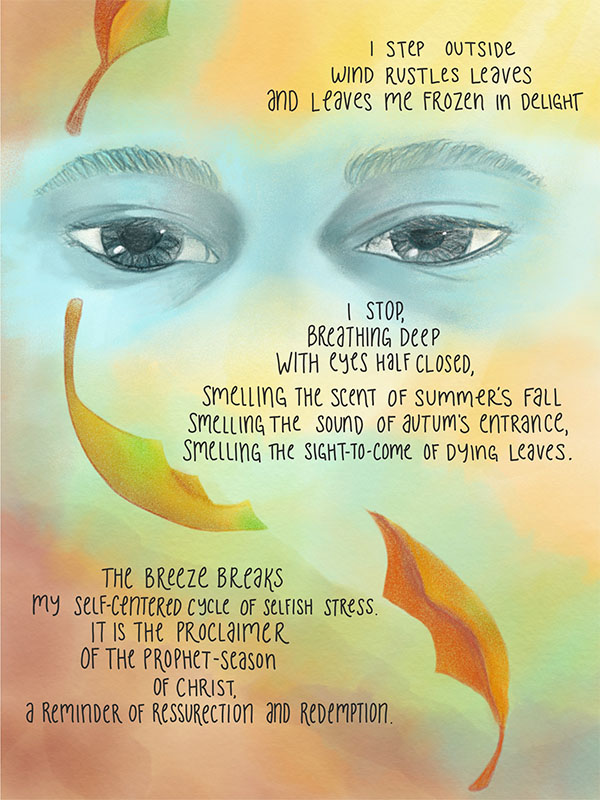 I STEP OUTSIDE
WIND RUSTLES LEAVES
AND LEAVES ME FROZEN IN DELIGHT
I STOP,
BREATHING DEEP
WITH EYES HALF CLOSED,
SMELLING THE SCENT OF SUMMER'S FALL
SMELLING THE SOUND OF AUTUM'S ENTRANCE,
SMELLING THE SIGHT-TO-COME OF DYING LEAVES.
THE BREEZE BREAKS
MY SELF-CENTERED CYCLE OF SELFISH STRESS.
IT IS THE PROCLAIMER
OF THE PROPHET-SEASON
OF CHRIST,
A REMINDER OF RESSURECTION AND REDEMPTION.